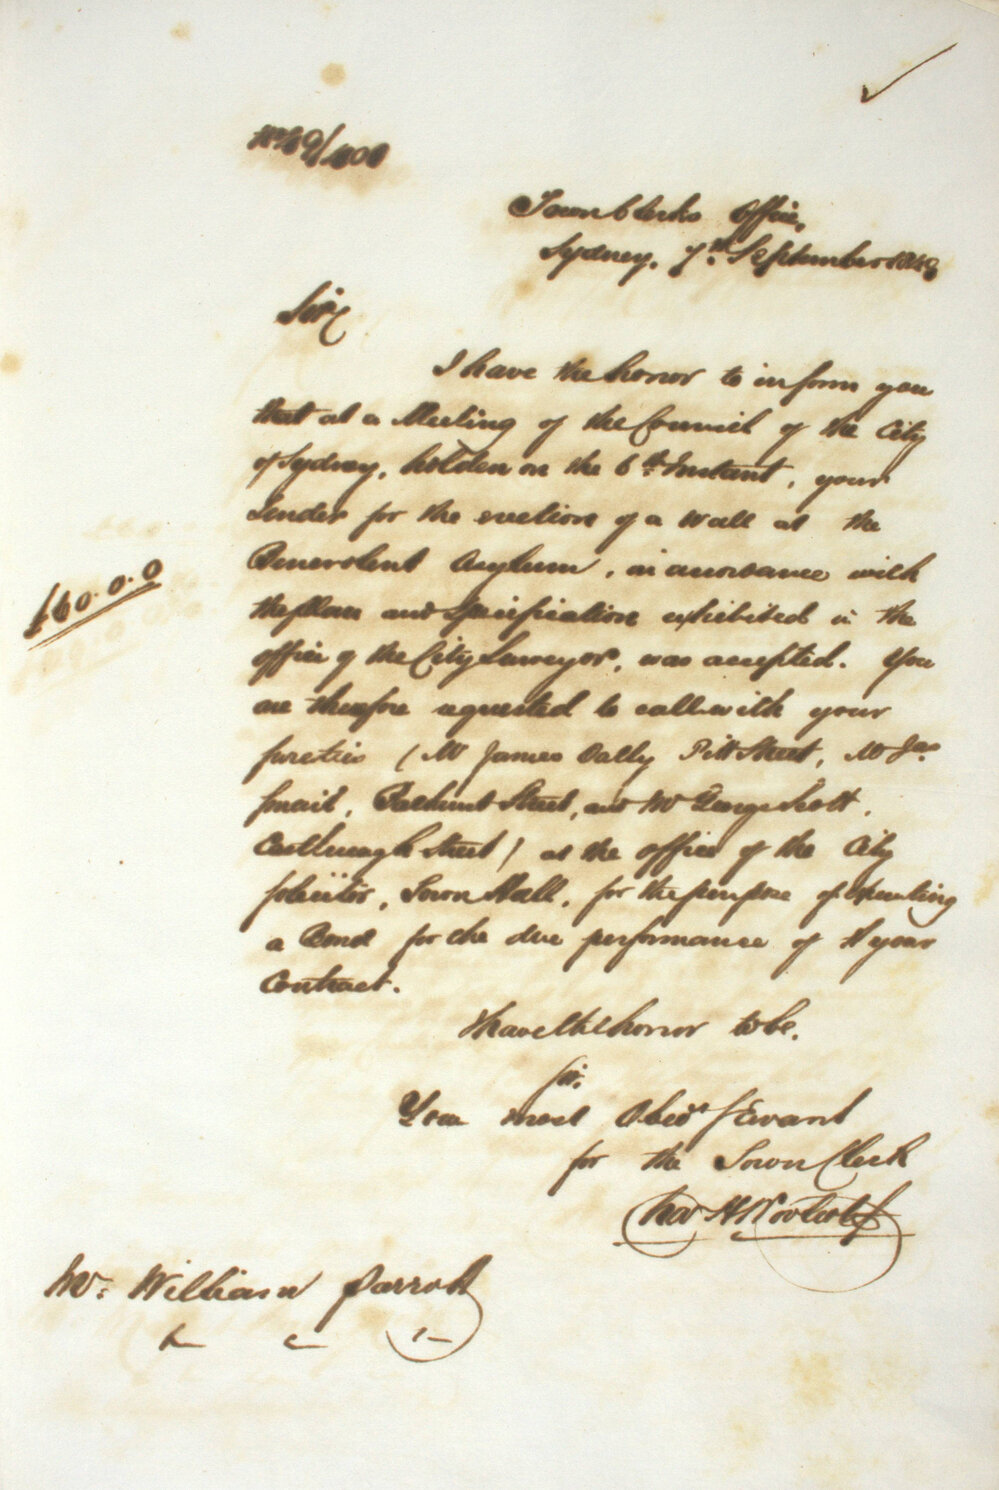 Town Clerks Office,
Sydney, 7th September 1849
Sir,
I have the honor to inform you
that at a Meeting of the Council of the City
of Sydney, holden on the 6th Instant, your
Tender for the erection of a Wall at the
Benevolent Asylum, in accordance with
the plan and Specification exhibited in the
office of the City Surveyor, was accepted. You
are therefore requested to call with your
sureties (Mr James Dally Pitt Street, Mr Jas
Smail, Bathurst Street, and Mr George Scott,
Castlereagh Street) at the office of the City
Solicitor, Town Hall, for the purpose of executing
a Bond for the due performance of your
Contract.
£60.0.0
I have the honor to be,
Sir,
Your most Obedt Servant
for the Town Clerk
Mr William Parrott